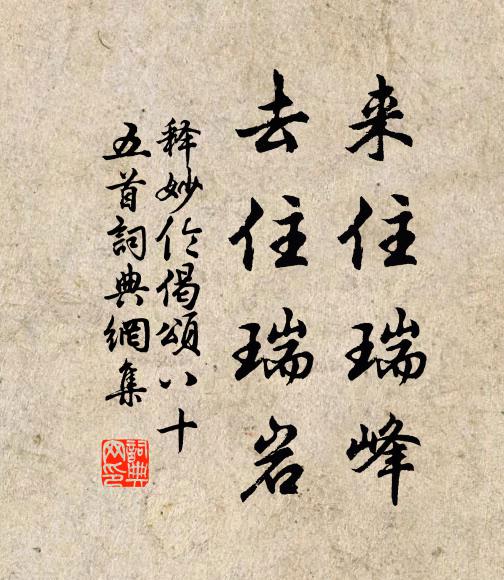 来住瑞峰
去住瑞岩
释妙伦偈颂八十
五首詞典網集
詞典
网印